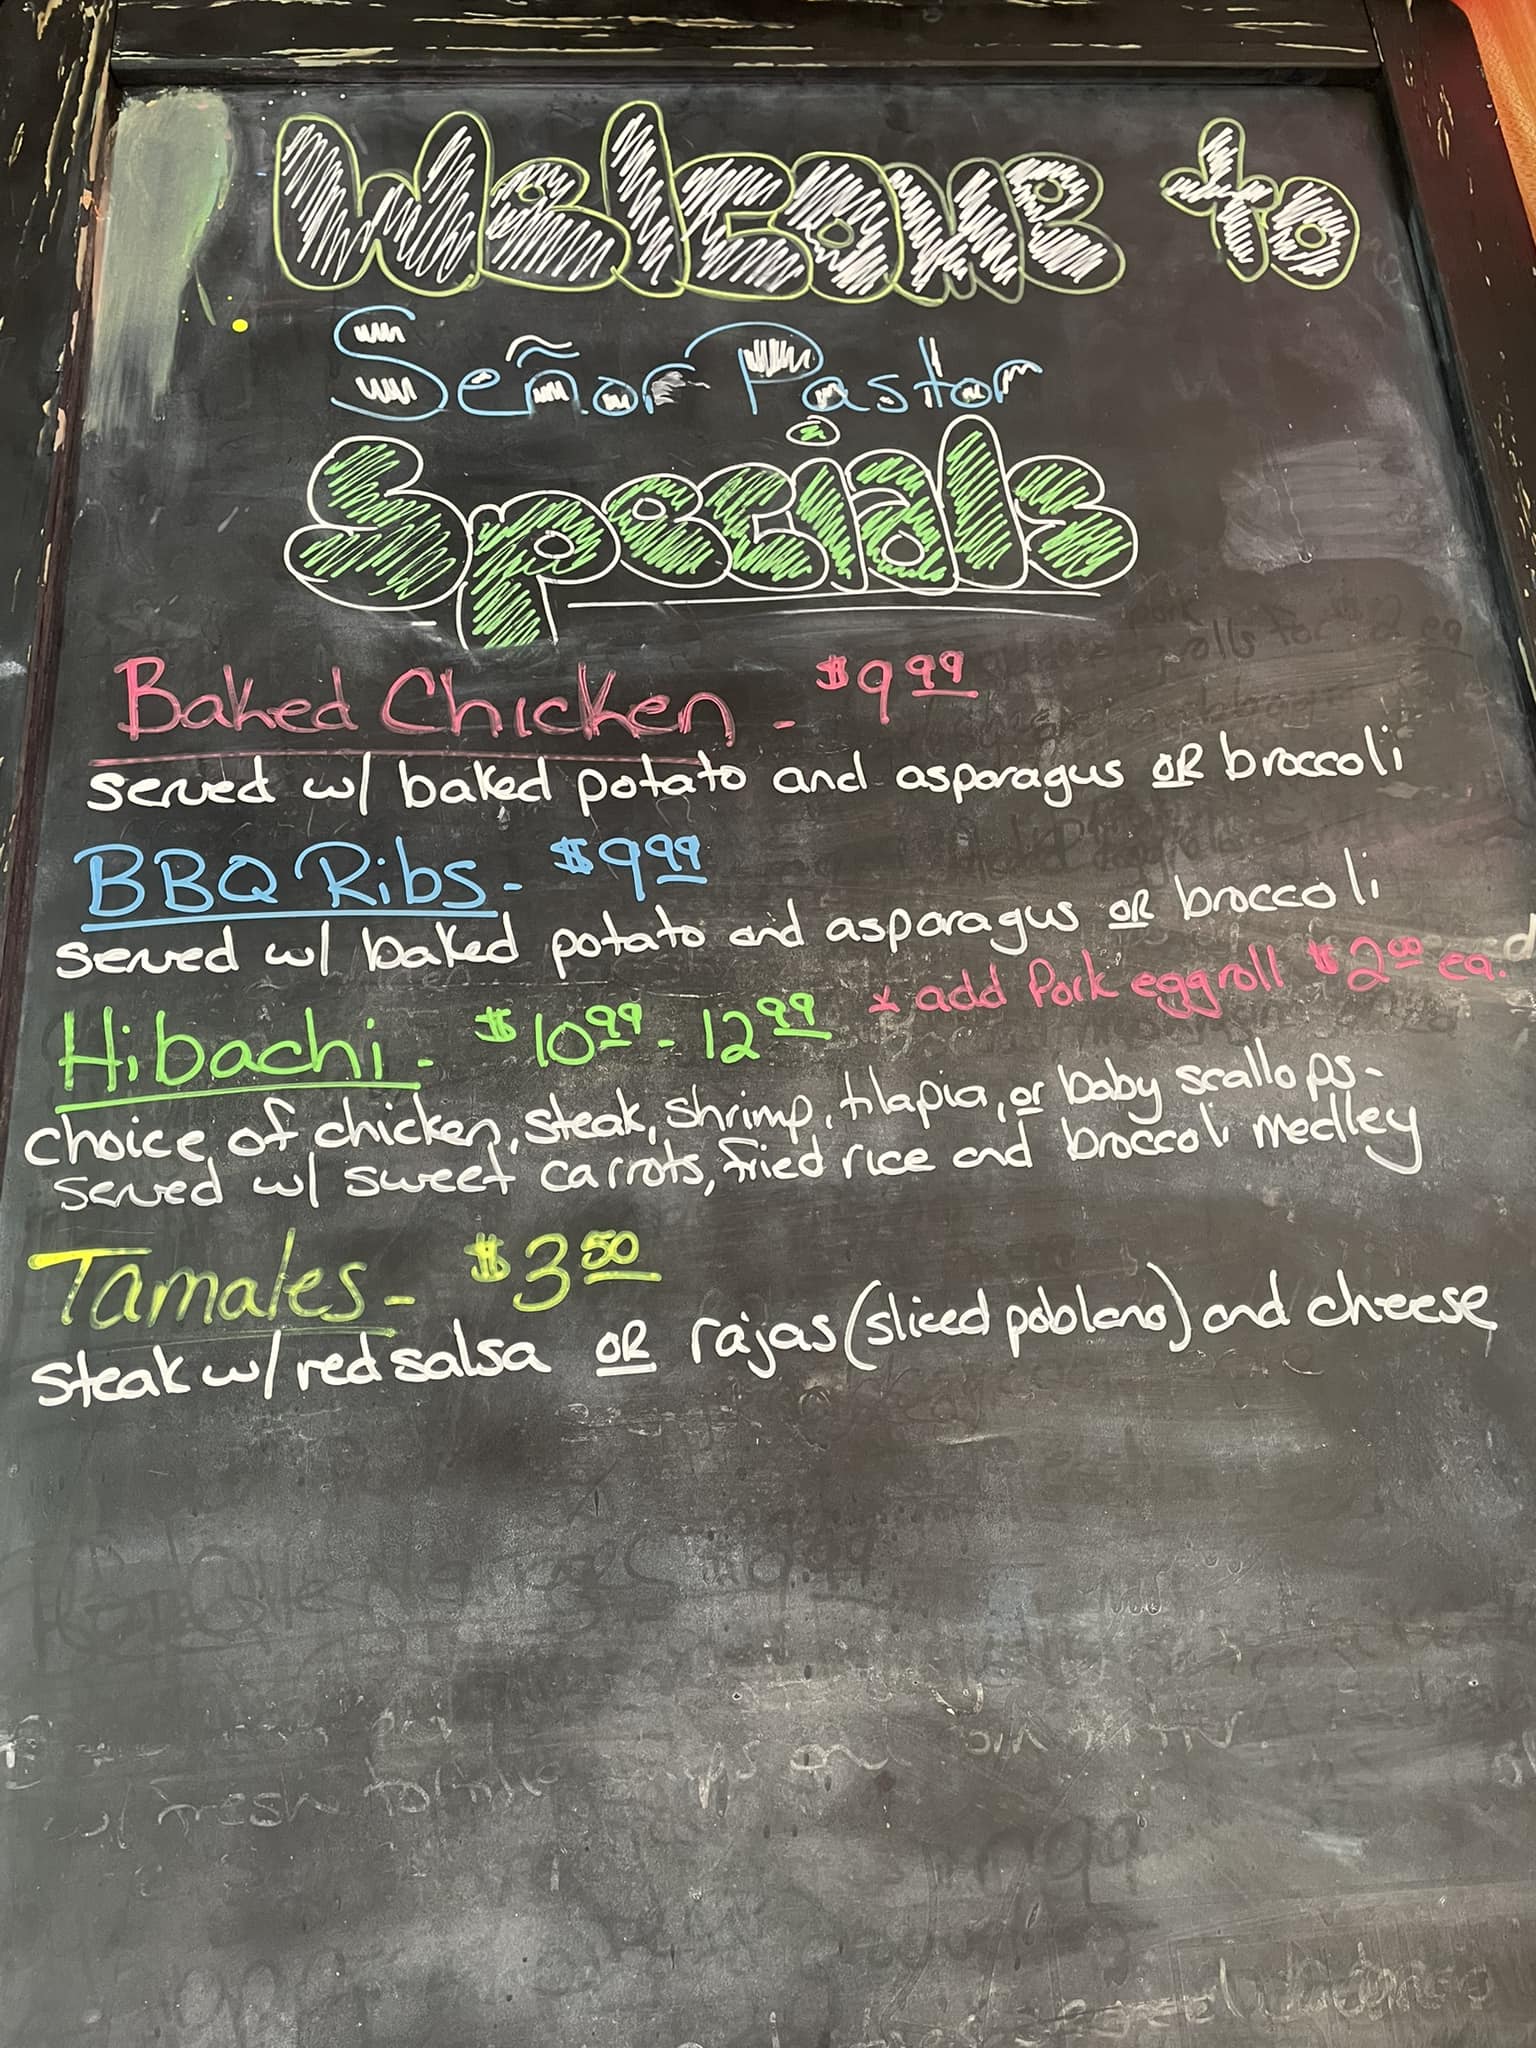 Welcome to
Señor Pastor
Specials
Baked Chicken - $9.99
served w/ baked potato and asparagus OR broccoli
BBQ Ribs - $9.99
served w/ baked potato and asparagus OR broccoli
* add Pork eggroll $2.00 ea.
Hibachi - $10.99 - 12.99
choice of chicken, steak, shrimp, tilapia, or baby scallops -
served w/ sweet carrots, fried rice and broccoli medley
Tamales - $3.50
steak w/ red salsa OR rajas (sliced poblano) and cheese